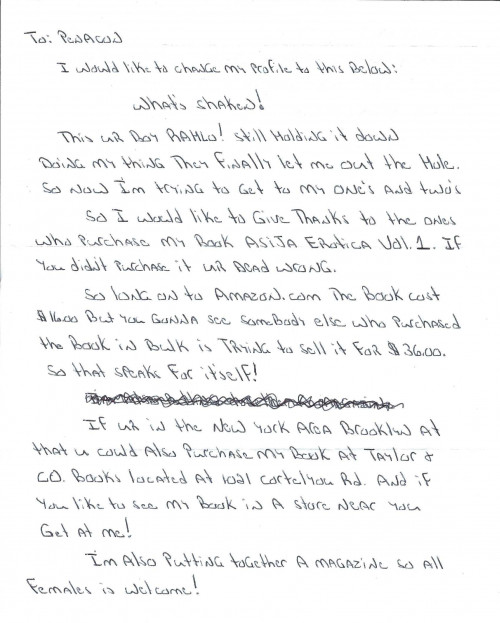 To: Penacon
I would like to change my profile to this Below:
what's shaken!
This ur Boy RAHLO! still Holding it down
Doing my thing They finally let me out the Hole.
So now I'm trying to get to my one's and two's
So I would like to Give Thanks to the ones
who purchase my Book ASIJA Erotica Vol. 1. If
you didn't purchase it ur Dead wrong.
So long on to Amazon.com The Book cost
$16.00 But you GONNA see somebody else who purchased
the Book in Bulk is Trying to sell it for $36.00.
So that speaks for itself!
If ur in the New York Area Brooklyn At
that u could Also Purchase my Book At Taylor &
CO. Books located At 1021 Cortelyou Rd. And if
you like to see my Book in A store near you
Get at me!
I'm Also Putting together A magazine so all
females is welcome!